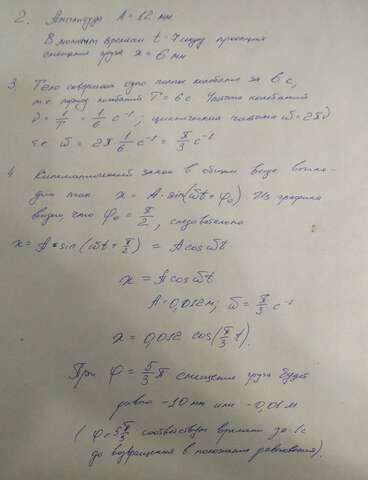 2. Амплитуда A = 12 мм
В момент времени t = 7 секунд проекция
смещения груза x = 6 мм
3. Тело совершает одно полное колебание за 6 с,
т.е. период колебаний T = 6 с Частота колебаний
ν = 1/T = 1/6 с⁻¹; циклическая частота ω = 2πν
т.е. ω = 2π · 1/6 с⁻¹ = π/3 с⁻¹
4. Кинематический закон в общем виде выгля-
дит так x = A · sin(ωt + φ₀). Из графика
видно что φ₀ = π/2, следовательно
x = A · sin(ωt + π/2) = A cos ωt
x = A cos ωt
A = 0,012 м; ω = π/3 с⁻¹
x = 0,012 cos(π/3 t).
При φ = 5/3 π смещение груза будет
равно -10 мм или -0,01 м
(φ = 5π/3 соответствует времени за 1 с
до возвращения в положение равновесия).